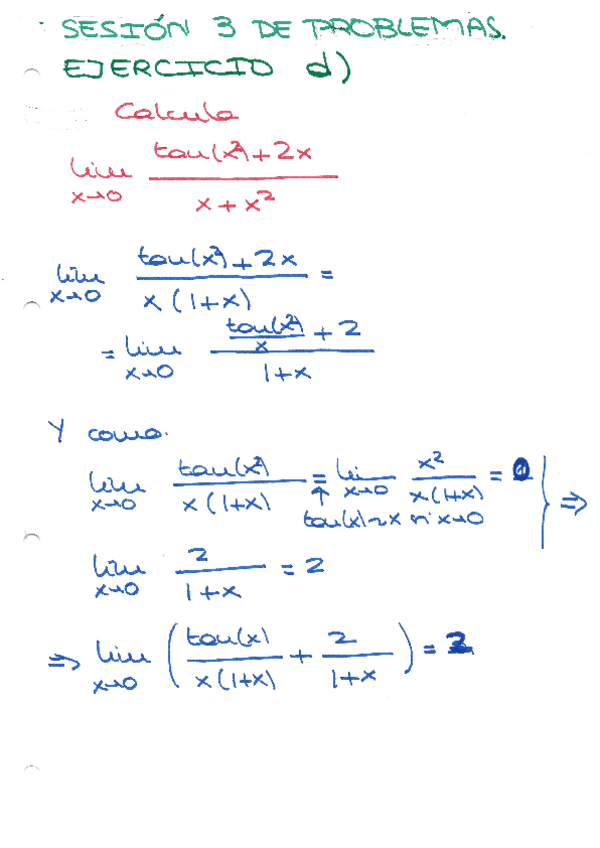 SESIÓN 3 DE PROBLEMAS.
EJERCICIO d)
Calcula
lim x→0 (tan(x²)+2x)/(x+x²)
lim x→0 (tan(x²)+2x)/(x(1+x)) =
= lim x→0 (tan(x²)/x + 2)/(1+x)
Y como.
lim x→0 tan(x²)/(x(1+x)) = lim x→0 x²/(x(1+x)) = 0 } ⇒
↑ tan(x)~x si x→0
lim x→0 2/(1+x) = 2
⇒ lim x→0 (tan(x)/(x(1+x)) + 2/(1+x)) = 2